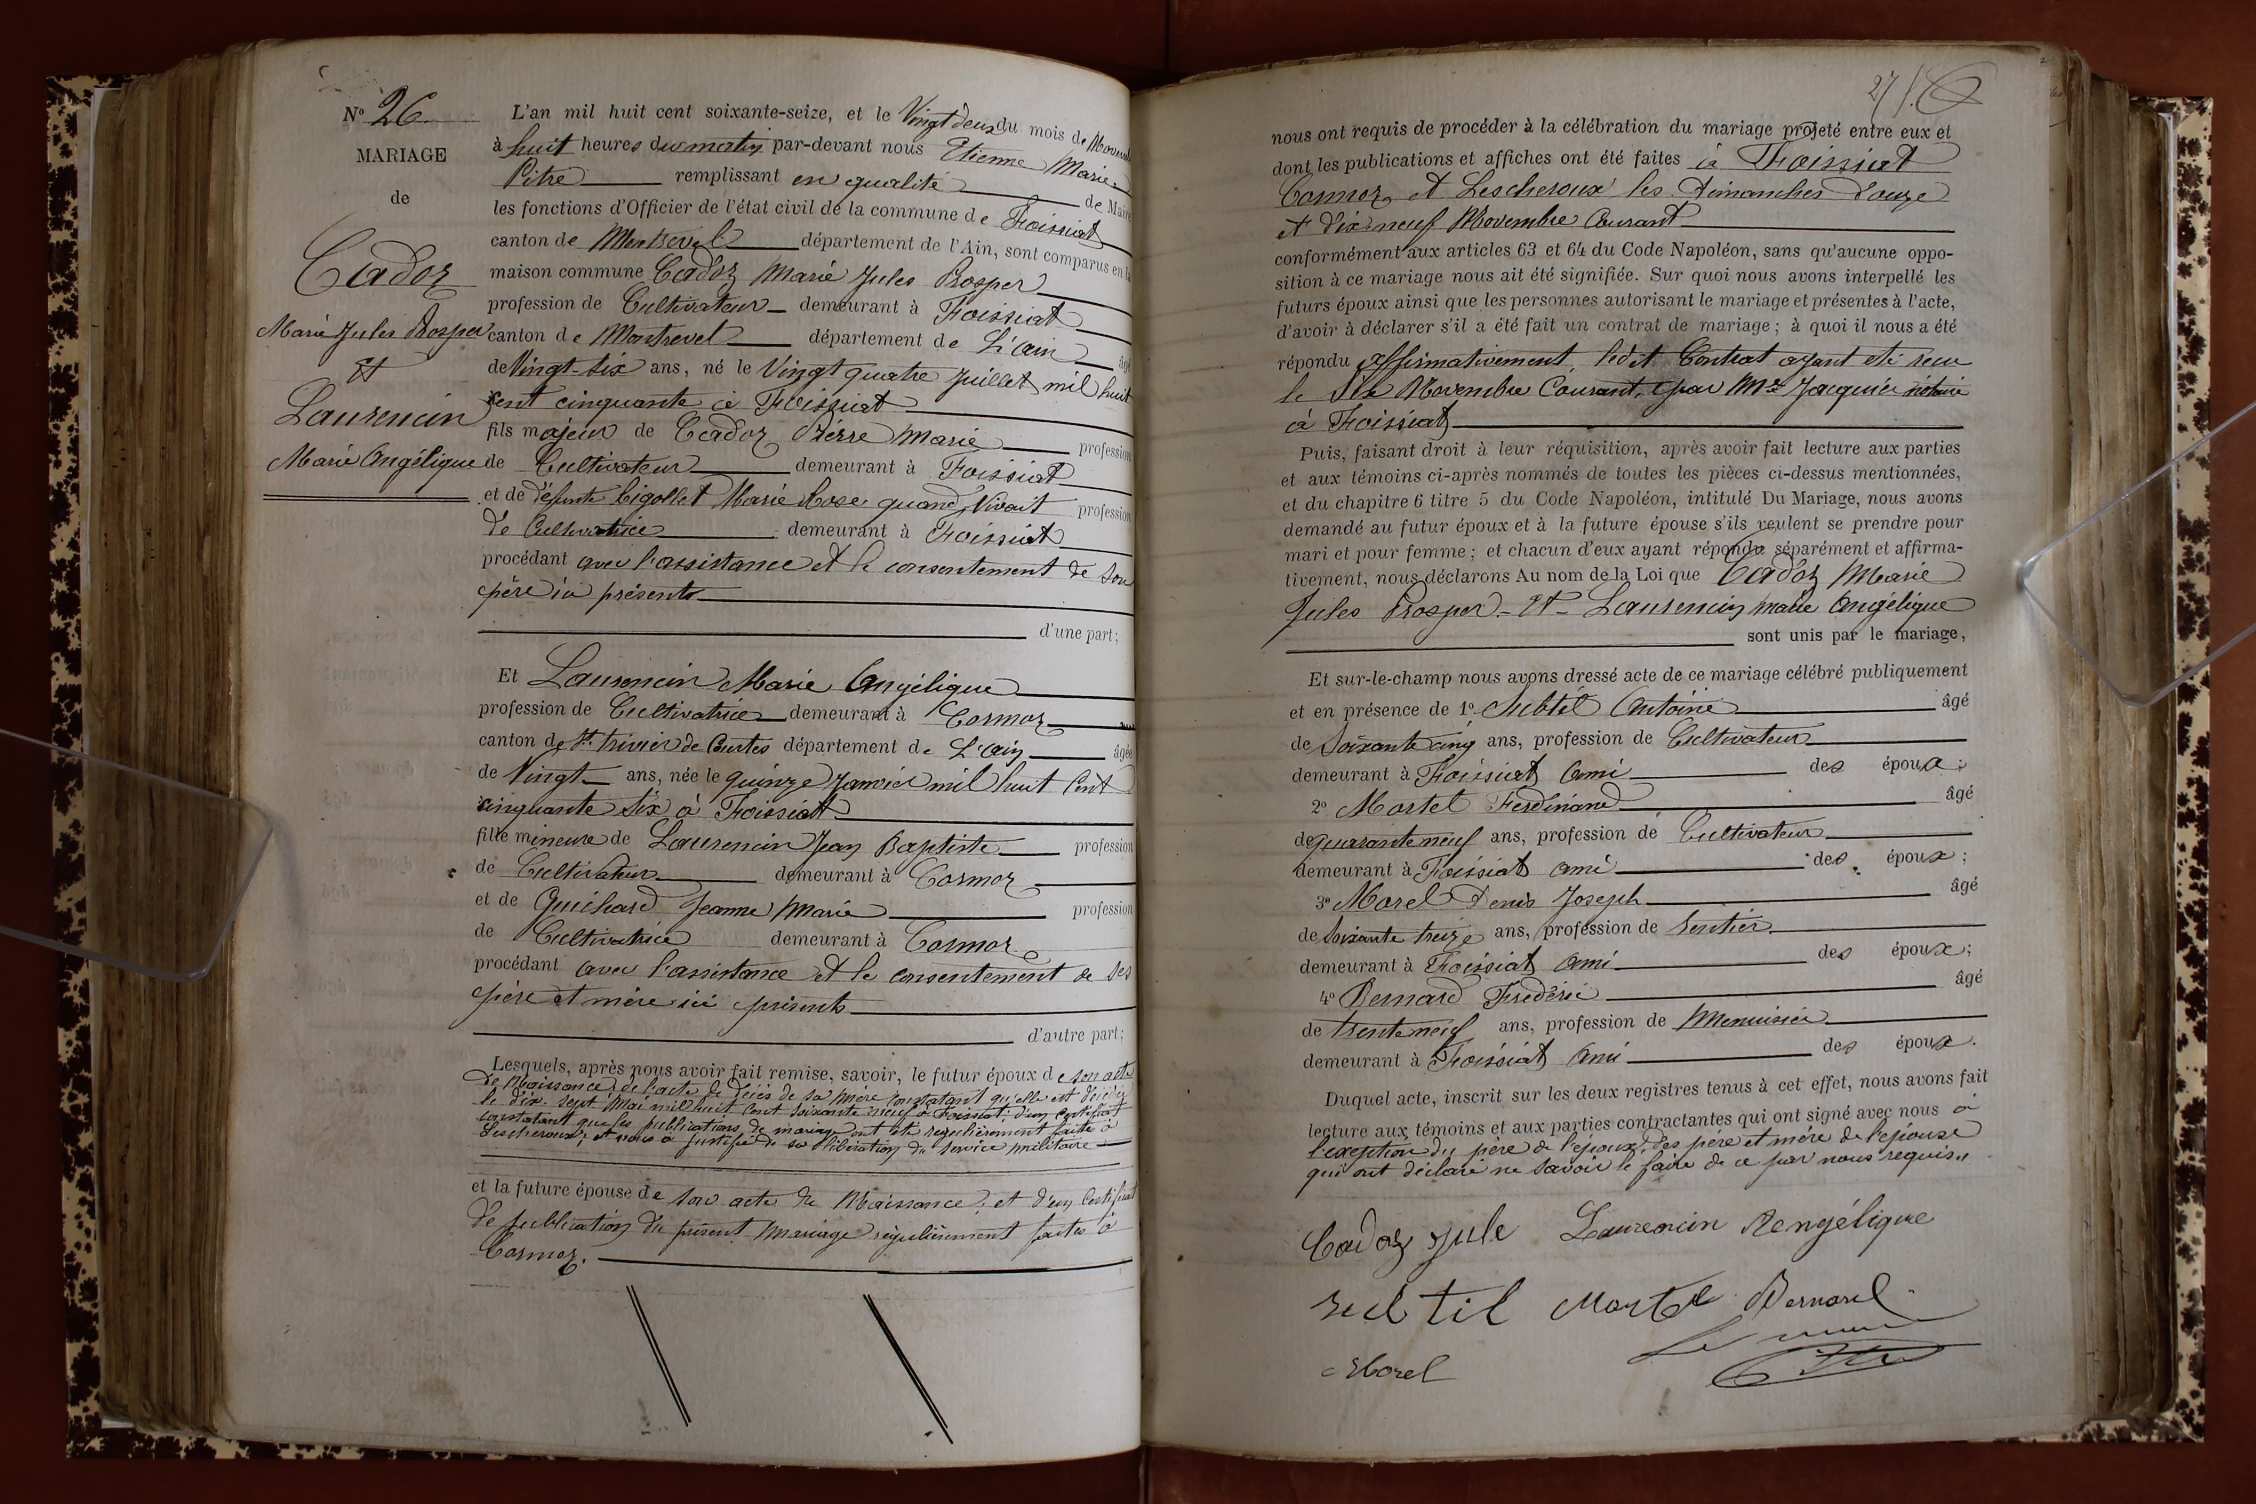 N° 26
MARIAGE
de
Cadoz
Marie Jules Prosper
Et
Laurencin
Marie Angélique
L'an mil huit cent soixante-seize, et le Vingt deux du mois de Novembre
à huit heures du matin par-devant nous Etienne Marie
Pitre remplissant en qualité de Maire
les fonctions d'Officier de l'état civil de la commune de Foissiat
canton de Montrevel département de l'Ain, sont comparus en la
maison commune Cadoz Marie Jules Prosper
profession de Cultivateur demeurant à Foissiat
canton de Montrevel département de L'ain âgé
de Vingt-six ans, né le Vingt quatre Juillet mil huit
cent cinquante à Foissiat
fils majeur de Cadoz Pierre Marie profession
de Cultivateur demeurant à Foissiat
et de défunte Cigollet Marie Rose quand Vivait profession
de Cultivatrice demeurant à Foissiat
procédant avec l'assistance et le consentement de son
père ici présent
d'une part;
Et Laurencin Marie Angélique
profession de Cultivatrice demeurant à Cormoz
canton de St trivier de Courtes département de L'ain âgée
de Vingt ans, née le quinze Janvier mil huit Cent
cinquante six à Foissiat
fille mineure de Laurencin Jean Baptiste profession
de Cultivateur demeurant à Cormoz
et de Guichard Jeanne Marie profession
de Cultivatrice demeurant à Cormoz
procédant avec l'assistance et le consentement de ses
père et mère ici présents
d'autre part;
Lesquels, après nous avoir fait remise, savoir, le futur époux de son acte
de Naissance, de l'acte de décès de sa mère constatant qu'elle est décédée
le dix-sept Mai mil huit Cent soixante neuf à Foissiat, d'un certificat
constatant que les publications de mariage ont été régulièrement faite à
Lescheroux; et nous a justifié de sa libération du service militaire
et la future épouse de son acte de Naissance, et d'un Certificat
de publication du présent mariage régulièrement faites à
Cormoz.
27
nous ont requis de procéder à la célébration du mariage projeté entre eux et
dont les publications et affiches ont été faites à Foissiat
Cormoz et Lescheroux les dimanches douze
et dix-neuf Novembre Courant
conformément aux articles 63 et 64 du Code Napoléon, sans qu'aucune oppo-
sition à ce mariage nous ait été signifiée. Sur quoi nous avons interpellé les
futurs époux ainsi que les personnes autorisant le mariage et présentes à l'acte,
d'avoir à déclarer s'il a été fait un contrat de mariage; à quoi il nous a été
répondu affirmativement, ledit Contrat ayant été recu
le Six Novembre Courant, par Me Jacquier notaire
à Foissiat
Puis, faisant droit à leur réquisition, après avoir fait lecture aux parties
et aux témoins ci-après nommés de toutes les pièces ci-dessus mentionnées,
et du chapitre 6 titre 5 du Code Napoléon, intitulé Du Mariage, nous avons
demandé au futur époux et à la future épouse s'ils veulent se prendre pour
mari et pour femme; et chacun d'eux ayant répondu séparément et affirma-
tivement, nous déclarons Au nom de la Loi que Cadoz Marie
Jules Prosper - Et - Laurencin Marie Angélique
sont unis par le mariage,
Et sur-le-champ nous avons dressé acte de ce mariage célébré publiquement
et en présence de 1° Subtil Antoine âgé
de Soixante cinq ans, profession de Cultivateur
demeurant à Foissiat Ami des époux;
2° Martel Ferdinand âgé
de quarante neuf ans, profession de Cultivateur
demeurant à Foissiat ami des époux;
3° Morel Denis Joseph âgé
de Soixante treize ans, profession de Rentier
demeurant à Foissiat Ami des époux;
4° Bernard Frédéric âgé
de trente neuf ans, profession de Menuisier
demeurant à Foissiat Ami des époux.
Duquel acte, inscrit sur les deux registres tenus à cet effet, nous avons fait
lecture aux témoins et aux parties contractantes qui ont signé avec nous à
l'exeption du père de l'époux, des père et mère de l'épouse
qui ont déclaré ne savoir le faire de ce par nous requis.
Cadoz Jule Laurencin Angélique
subtil Martel Bernard
Morel